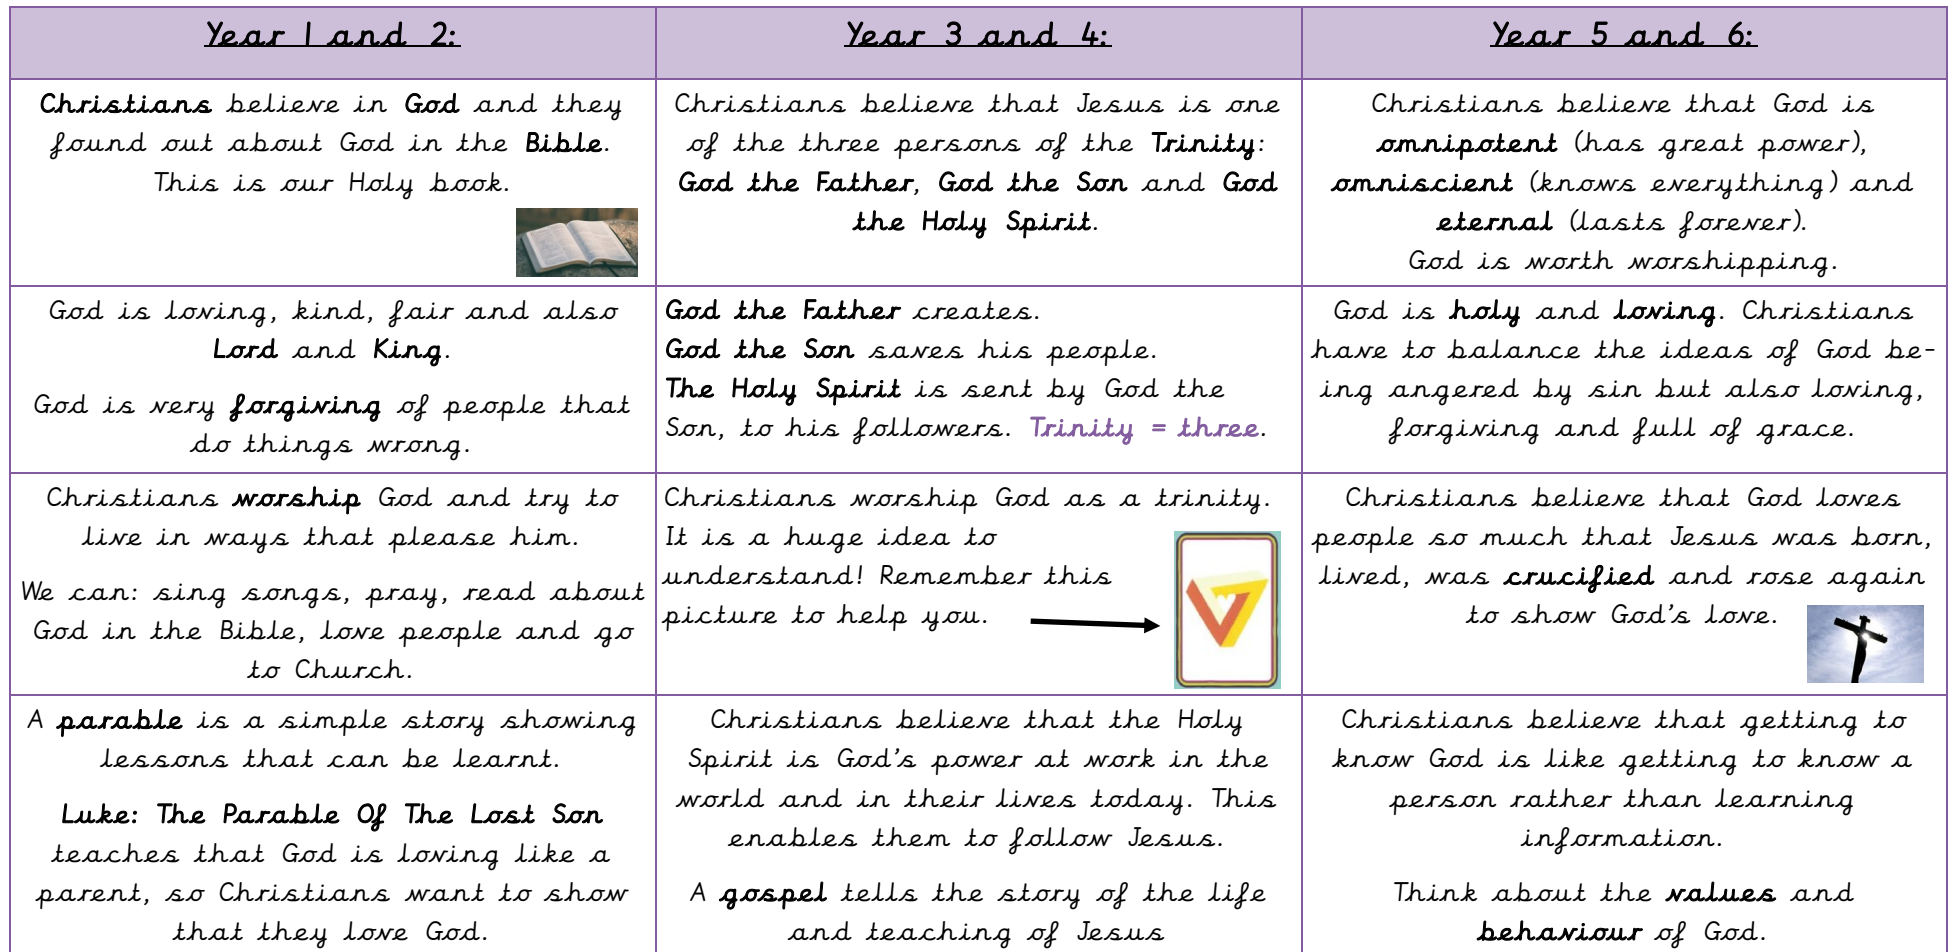 Year 1 and 2:
Year 3 and 4:
Year 5 and 6:
Christians believe in God and they
found out about God in the Bible.
This is our Holy book.
Christians believe that Jesus is one
of the three persons of the Trinity:
God the Father, God the Son and God
the Holy Spirit.
Christians believe that God is
omnipotent (has great power),
omniscient (knows everything) and
eternal (lasts forever).
God is worth worshipping.
God is loving, kind, fair and also
Lord and King.
God is very forgiving of people that
do things wrong.
God the Father creates.
God the Son saves his people.
The Holy Spirit is sent by God the
Son, to his followers. Trinity = three.
God is holy and loving. Christians
have to balance the ideas of God be-
ing angered by sin but also loving,
forgiving and full of grace.
Christians worship God and try to
live in ways that please him.
We can: sing songs, pray, read about
God in the Bible, love people and go
to Church.
Christians worship God as a trinity.
It is a huge idea to
understand! Remember this
picture to help you.
Christians believe that God loves
people so much that Jesus was born,
lived, was crucified and rose again
to show God's love.
A parable is a simple story showing
lessons that can be learnt.
Luke: The Parable Of The Lost Son
teaches that God is loving like a
parent, so Christians want to show
that they love God.
Christians believe that the Holy
Spirit is God's power at work in the
world and in their lives today. This
enables them to follow Jesus.
A gospel tells the story of the life
and teaching of Jesus
Christians believe that getting to
know God is like getting to know a
person rather than learning
information.
Think about the values and
behaviour of God.